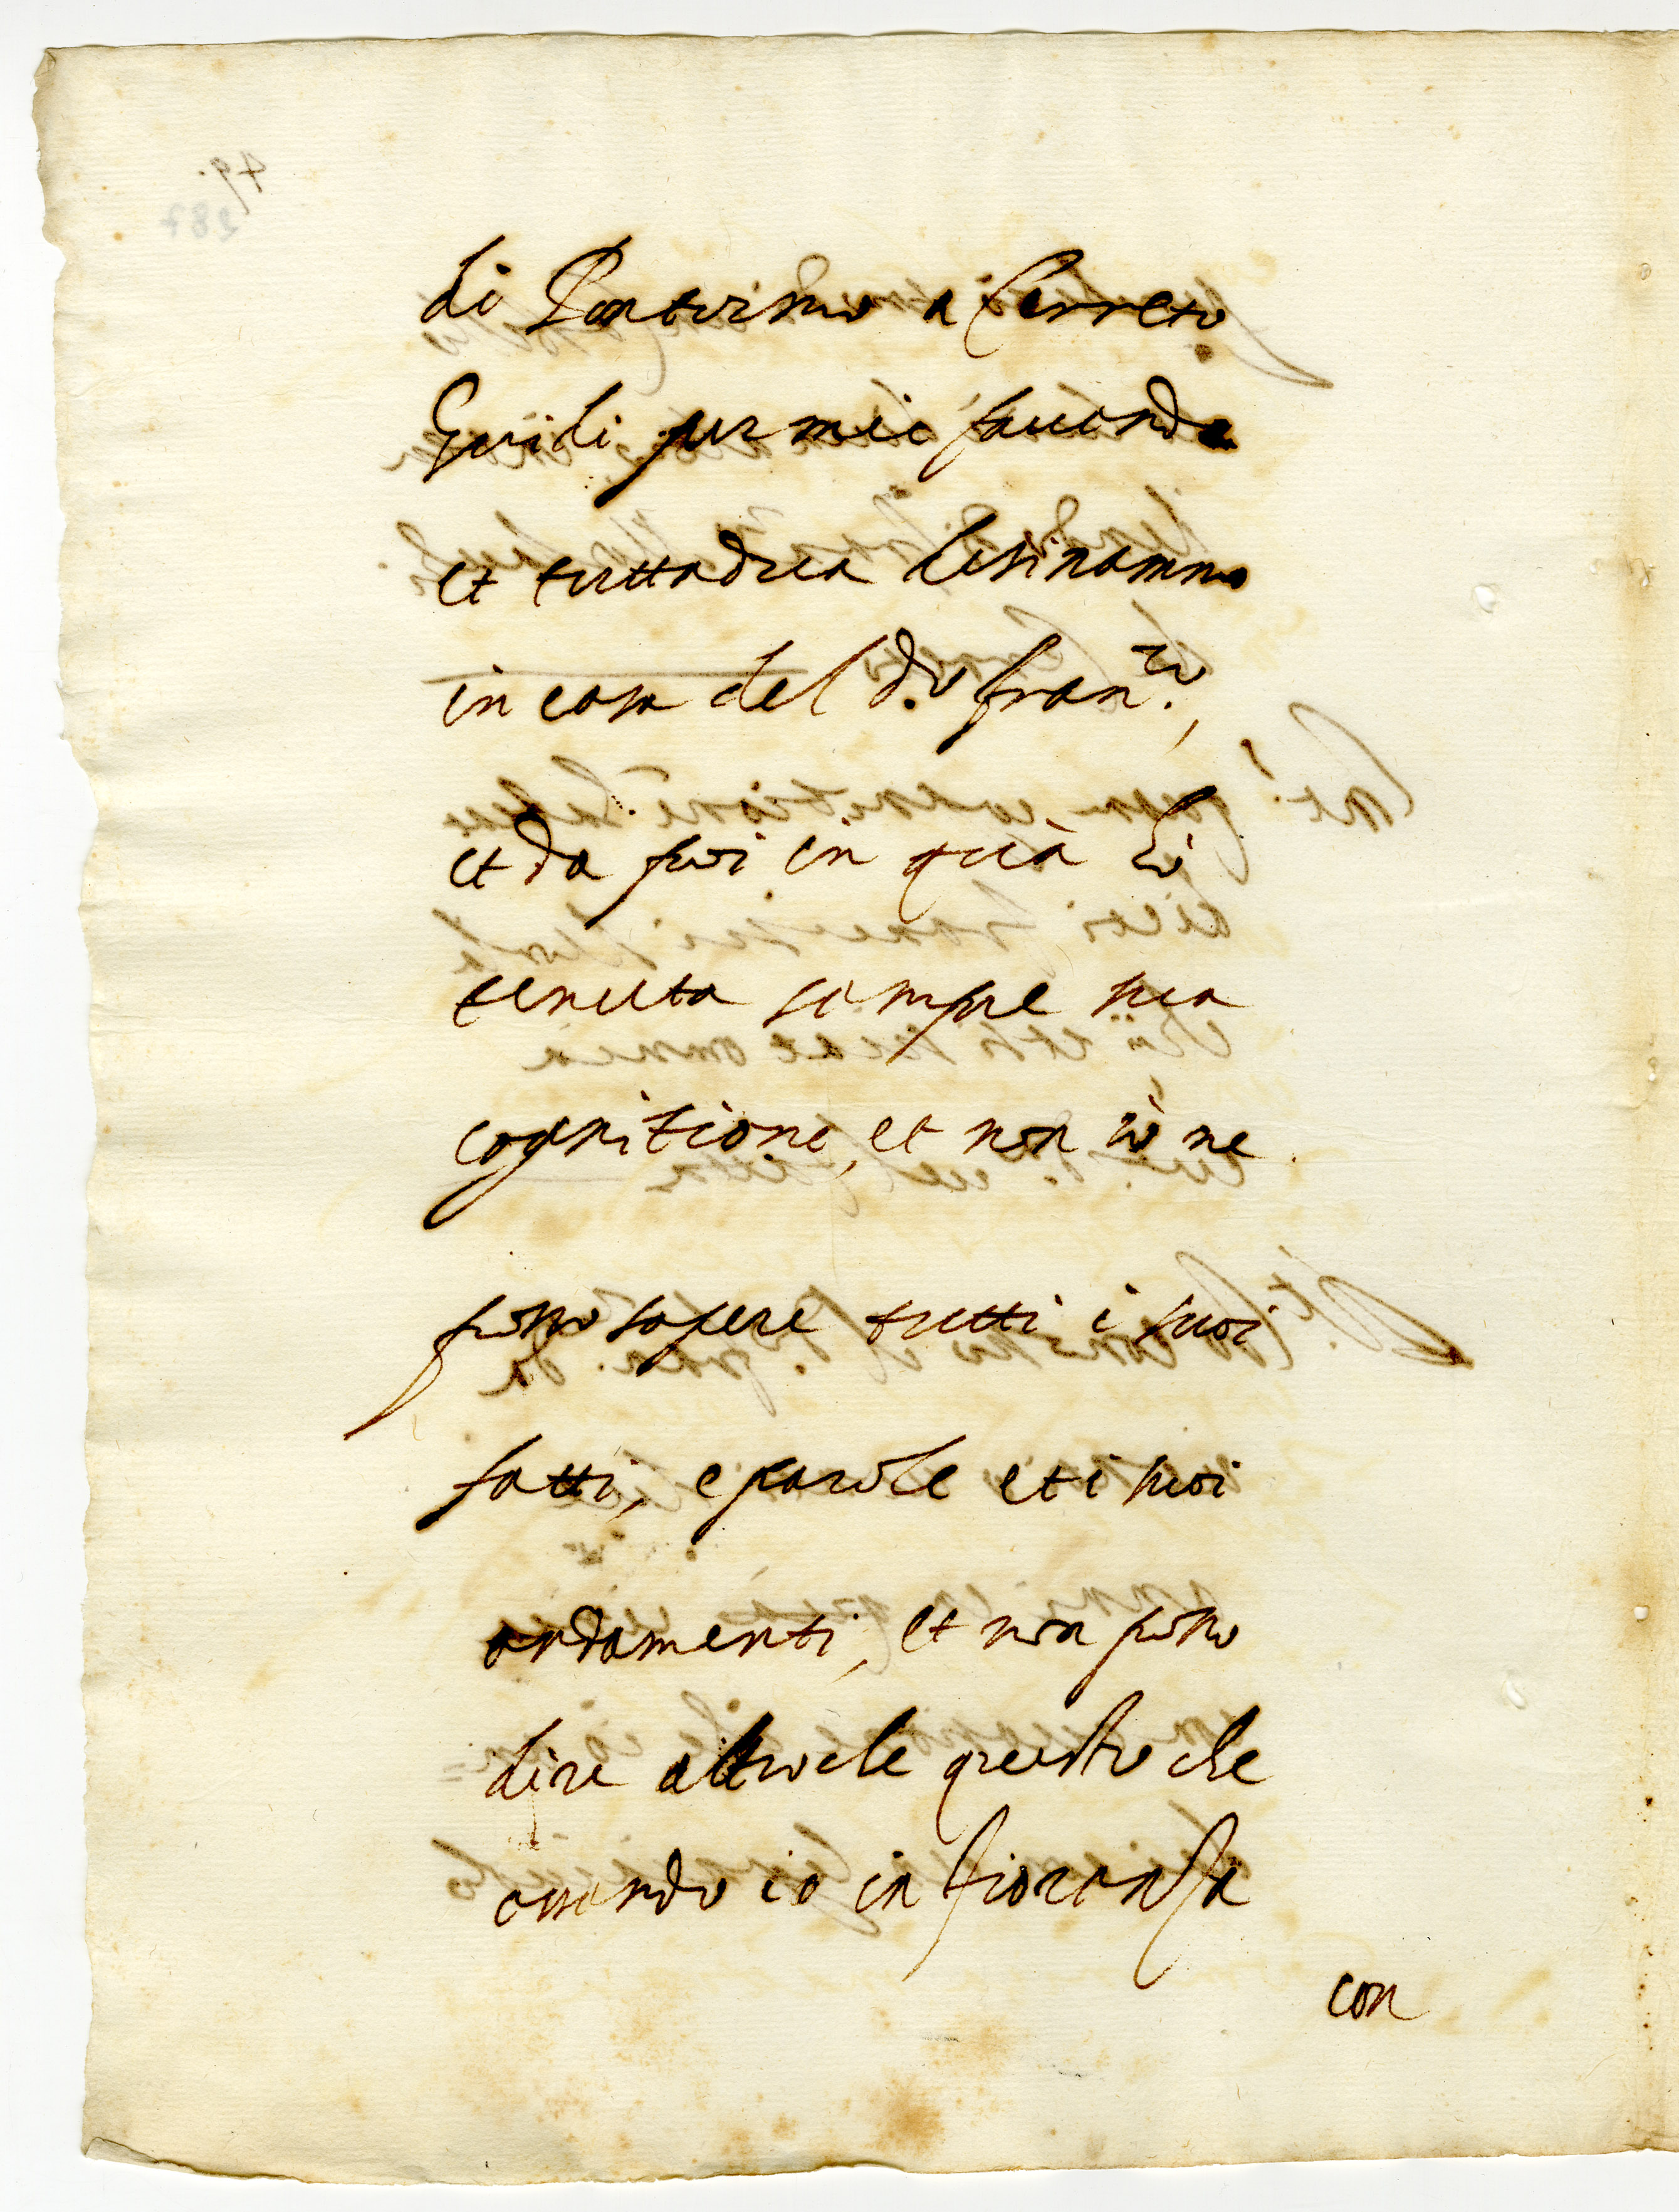 di Pontormo a Cerreto
Guidi per mie facende
et tuttadua desinammo
in casa del d.o Fran.co,
et da poi in quà hò
tenuta sempre sua
cognitione, et non iò ne
posso sapere tutti i suoi
fatti, e parole et i suoi
andamenti, et non posso
dire altro che questo che
essendo io in Fiorenza
con